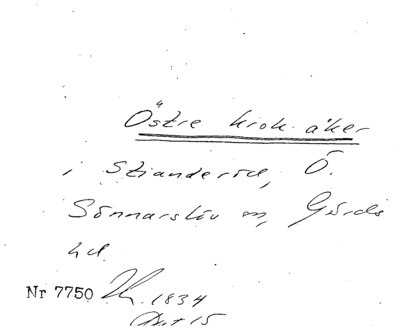 Östre krok åker
i Stianderöd, Ö.
Sönnarslöv sn, Gärds
hd
Nr 7750 1834
Akt 15